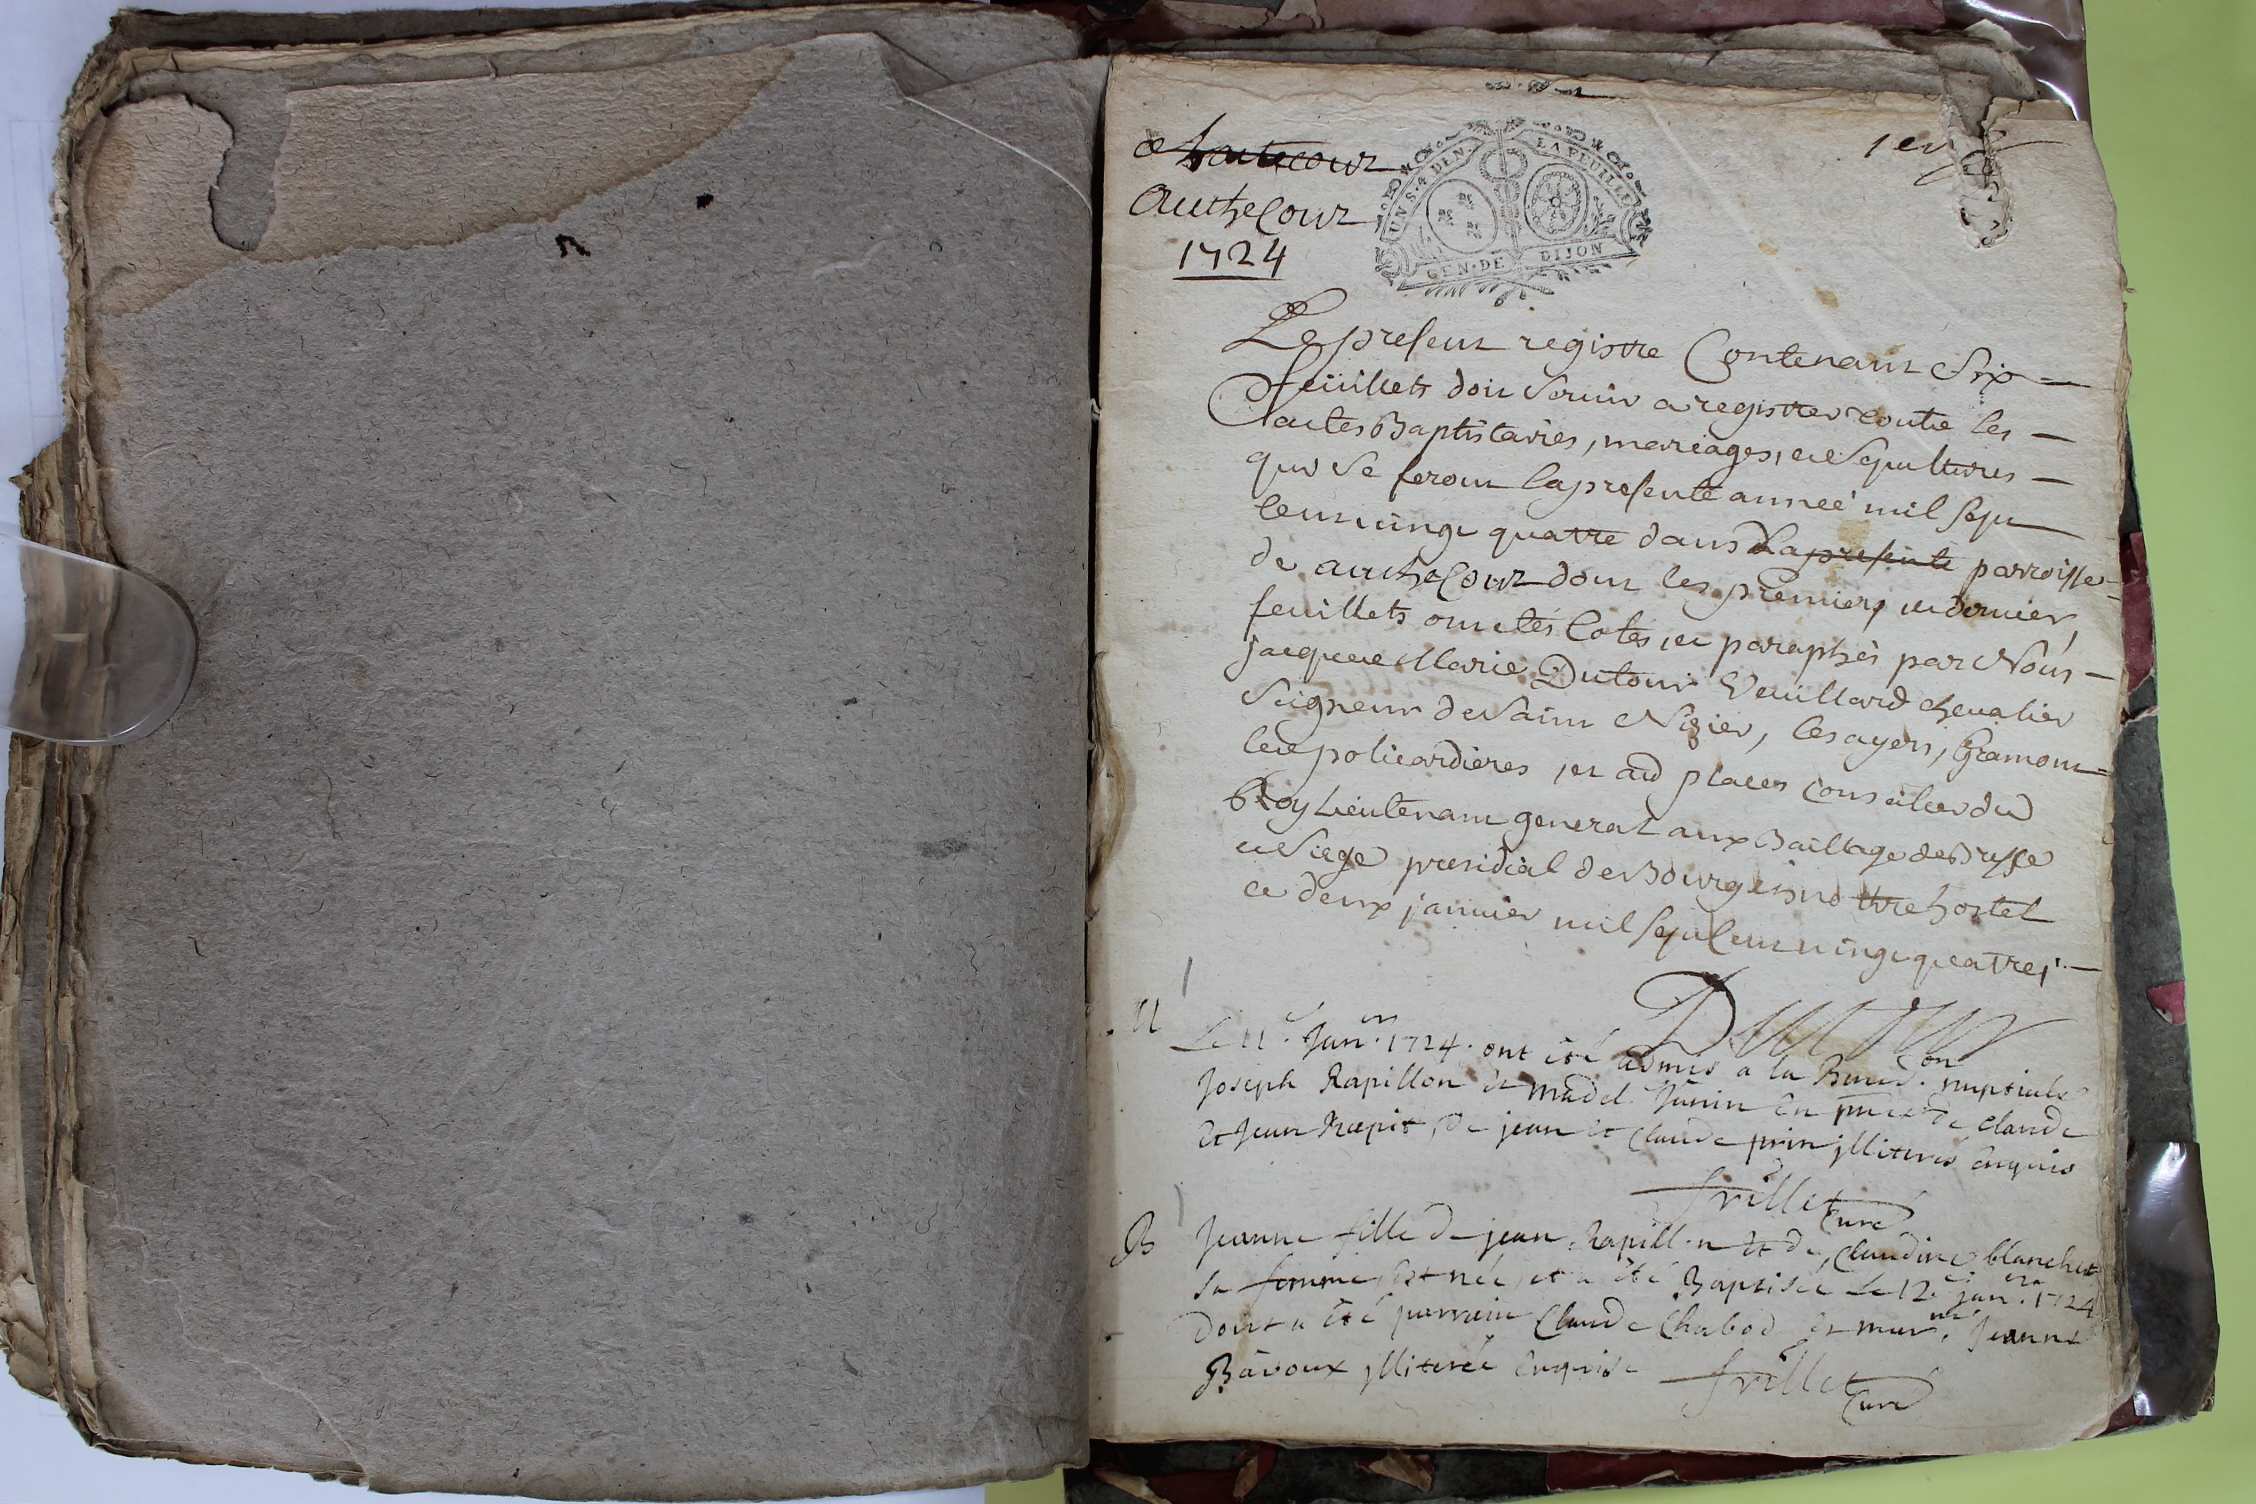 1er
hautecour
AutheCour
1724
UN S. 4 DEN. LA FEUILLE
GEN. DE DIJON
Le present registre Contenant Six
feuillets doit Servir a registrer toutte les
actes Baptistaires, mariages, et Sepultures
qui Se feront la presente année mil sept
Cent vingt quatre dans La presente parroisse
de autheCour dont les premiers et dernier
feuillets ont étés Cotés et paraphés par Nous
jacque Marie Dutour Veuillard chevalier
Seigneur de Saint Nizier, les ayers, Gramont
les policardieres et au places Conseiller du
Roy Lieutenant general aux Baillage de Bresse
et Siege presidial de Bourg en no tre hostel
ce deux janvier mil sept Cent vingt quatre
Dutour
M
Le 11e Janer 1724. ont été admis a la Bened.on nuptiale
Joseph Rapillon et Madel. Janin En pnce de Claude
Et Jean Roepit, de jean et Claude prin jlliteres Enquis
frillet Curé
B
Jeanne fille de jean Rapillon et de Claudine blanchet
sa femme est née et a été Baptisée le 12e janer 1724
dont a été parrain Claude Chabod et marne Jeanne
Bavoux jlliterée Enquise frillet Curé